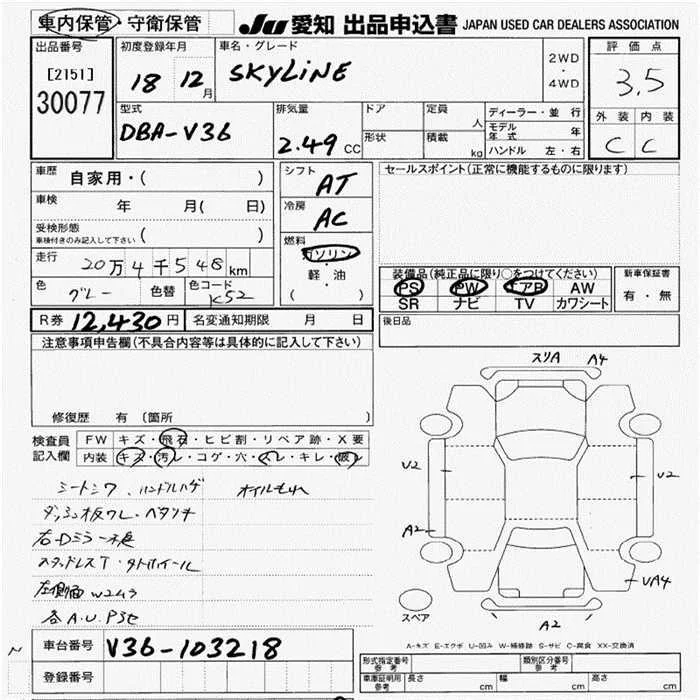 車内保管・守衛保管 JU 愛知 出品申込書 JAPAN USED CAR DEALERS ASSOCIATION
出品番号 初度登録年月 車名・グレード 2WD ・ 4WD 評価点
[2151] 18 12月 SKYLINE 3.5
30077
型式 排気量 ドア 定員 人 ディーラー・並 行 外装 内装
DBA-V36 2.49 CC 形状 積載 kg モデル年式 年 C C
ハンドル 左・右
車歴 自家用・( ) シフト AT セールスポイント(正常に機能するものに限ります)
車検 年 月( 日) 冷房 AC
受検形態 ( )
車検付きのみ記入して下さい
燃料 ガソリン・軽油 ( )
走行 20万4千548km
装備品(純正品に限り○をつけてください) 新車保証書
PS PW エアB AW 有・無
SR ナビ TV カワシート
色 グレー 色替 色コード K52
R券 12,430円 名変通知期限 月 日 後日品
注意事項申告欄(不具合内容等は具体的に記入して下さい)
スリA A4
修復歴 有 (箇所 )
検査員記入欄 FW キズ・飛石・ヒビ割・リペア跡・X要
内装 キズ・汚レ・コゲ・穴・スレ・キレ・破レ
U2 U2
シートシワ、ハンドルハゲ オイルもれ
ダッシュ板ワレ・ベタツキ
右Dミラー不良
A2
スタッドレスT・タトホイール
左側面W2ムラ
UA4
各A.U.Pヨセ
スペア
A2
A-キズ E-エクボ U-凹み W-補修跡 S-サビ C-腐食 XX-交換済
車台番号 V36-103218
登録番号
形式指定番号 参考 類別区分番号 参考
車庫証明用 参考 長さ cm 幅 cm 高さ cm